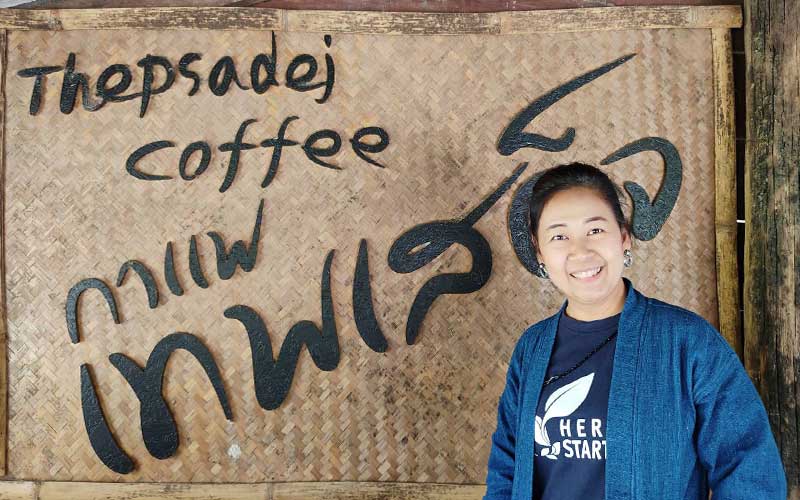 Thepsadej
coffee
กาแฟ
เทพเสด็จ
HER
START